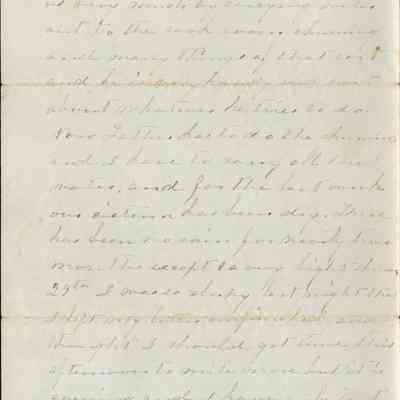 out to the cook room churning
and many things of that sort
and he is very handy and neat
about whatever he tries to do.
Now Lettie has to do the churning
and I have to carry all the
water, and for the last week
our cistern has been dry. There
has been no rain for nearly two
months except a very light shower
29th I was so sleepy last night that
I left my letter unfinished and
thought I should get time this
afternoon to write more but it is
evening and I have